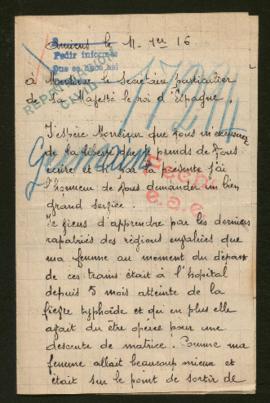 Amiens le 11. 1er 16
Pedir informe
Que se hace así
A Monsieur le Secrétaire particulier
de Sa Majesté le roi d'Espagne.
REPATRIACION
CIVIL
J'espère Monsieur que vous m'excuserez
de la liberté que je prends de vous
écrire et par la présente j'ai
l'honneur de vous demander un bien
grand service.
Je viens d'apprendre par les derniers
rapatriés des régions envahies que
ma femme au moment du départ
de ces trains était à l'hôpital
depuis 5 mois atteinte de la
fièvre typhoïde et qui en plus elle
avait du être opérée pour une
descente de matrice. Comme ma
femme allait beaucoup mieux et
était sur le point de sortir de